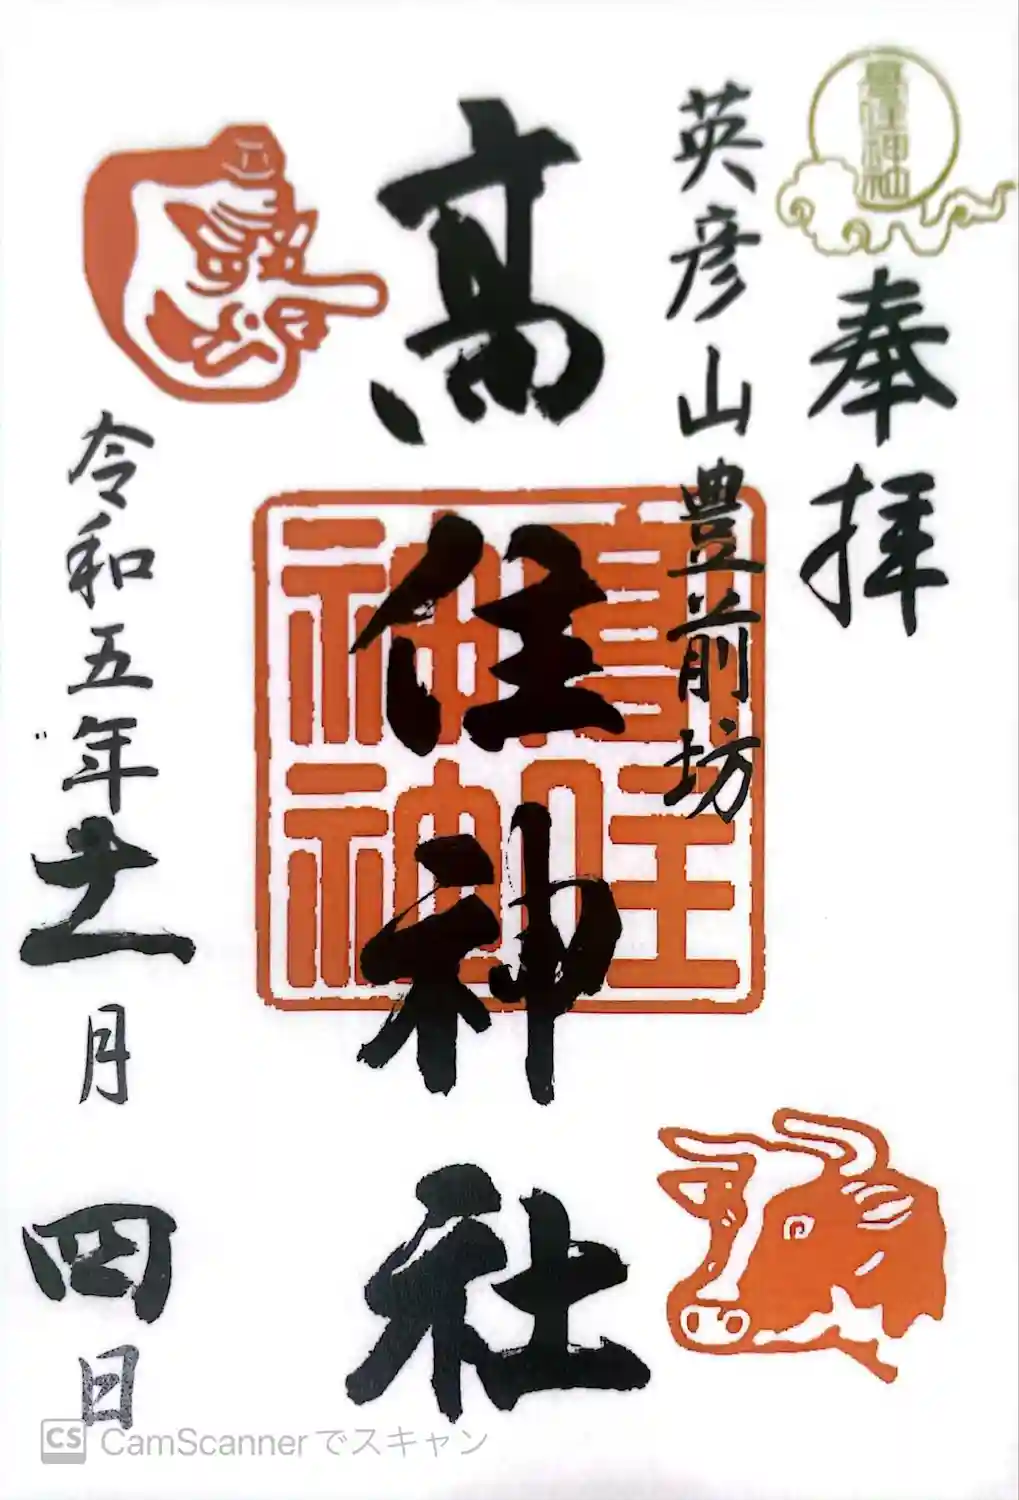 奉拝
英彦山豊前坊
高住神社
高住神社
高住神社
令和五年十一月四日
CS CamScannerでスキャン